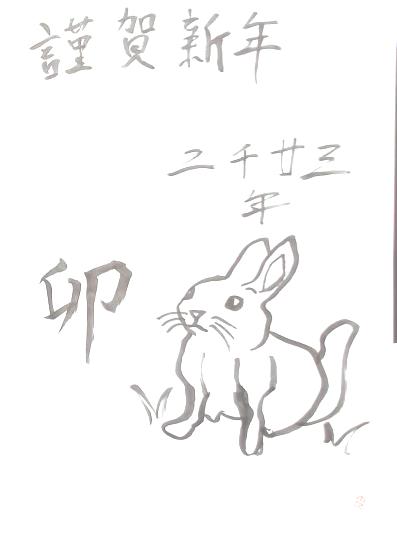 謹賀新年
二千廿三
年
卯